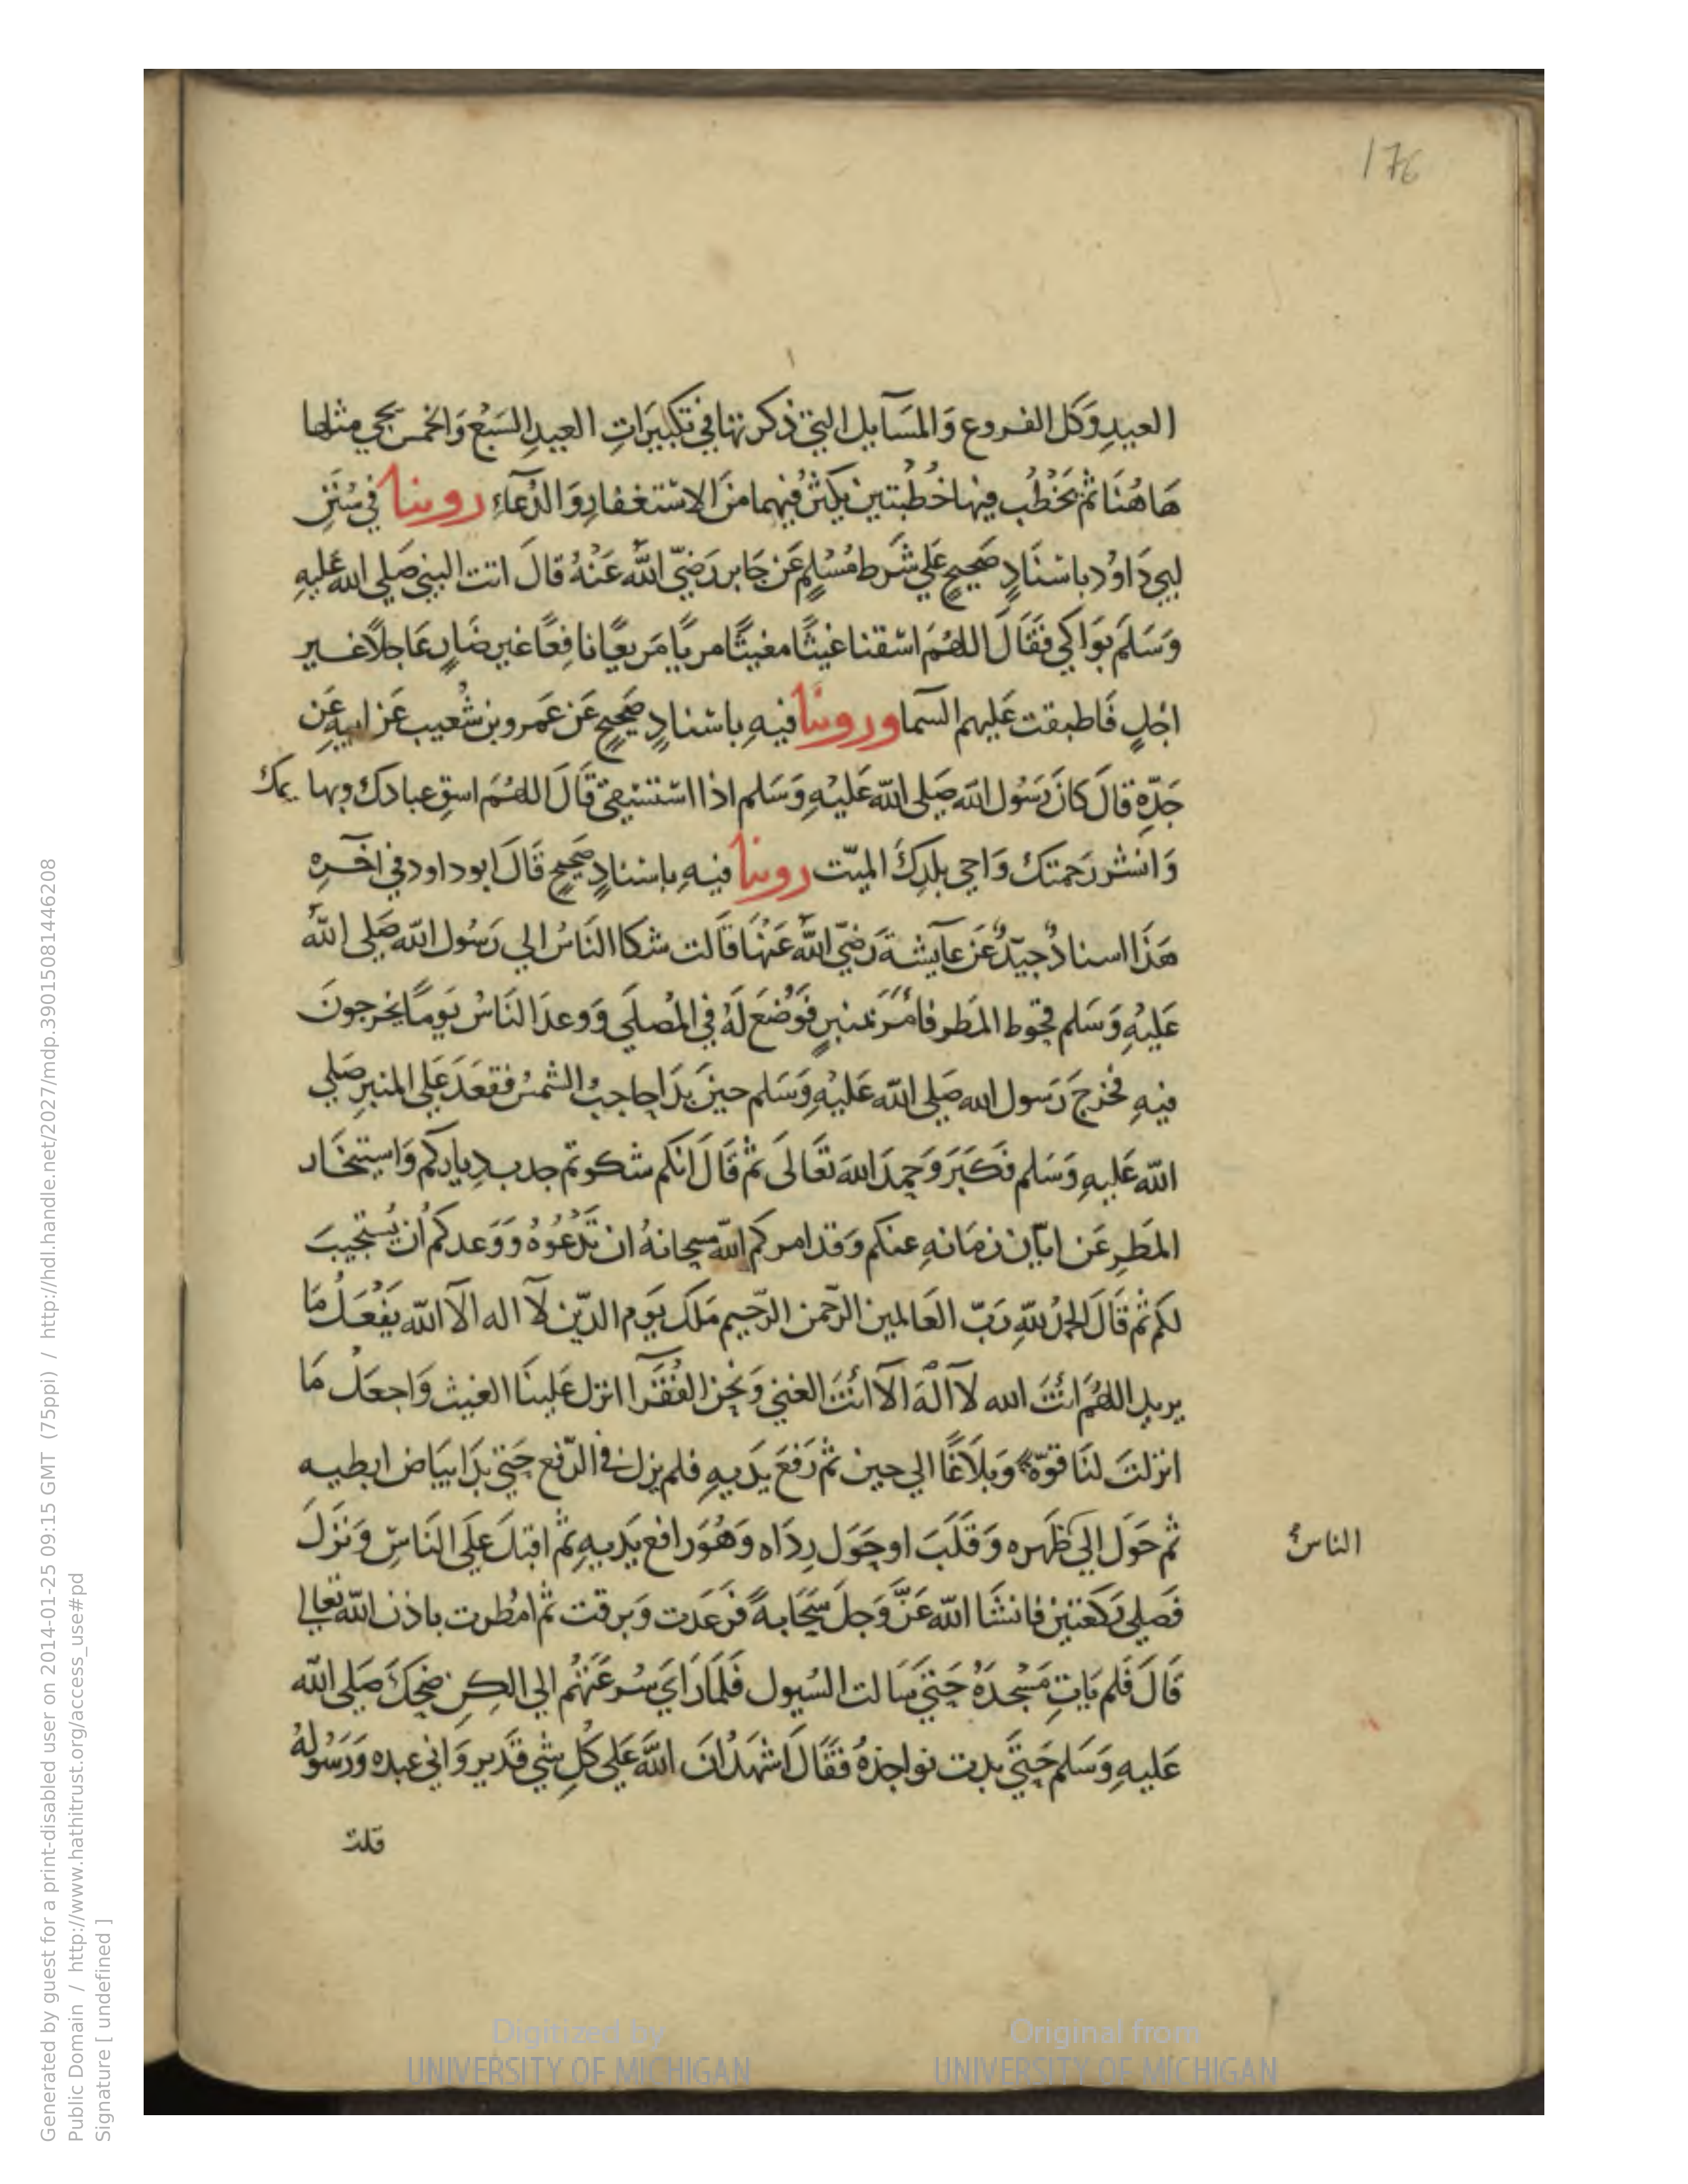 176
العيدِ وَكل الفروع وَالمسَآيل التي ذكرتها في تكبيرَاتِ العيدِ السَبْع وَالخمس يجي مثلها
هَاهُنَا ثم يَخْطُب فيها خُطْبتين يكثر فيهما منَ الاسْتغفارِ وَالدُعآء روينا في سُنَنِ
ابي دَاوُد باسْنَادٍ صَحيحٍ علي شَرط مُسْلمٍ عَن جَابر رَضيّ اللّه عَنْهُ قالَ اتت النبي صَلي الله عليهِ
وَسَلمَ بوَاكي فقَالَ اللهُمَ اسْقنا غيثًا مغيثًا مريًا مَريعًا نافِعًا غير ضَارٍ عَاجلاً غير
اجلٍ فَاطبقت عَليهم السما وروينا فيهِ باسْنادٍ صَحيحٍ عَن عَمرو بن شُعيب عَن ابيهِ عَن
جَدّهِ قالَ كانَ رَسُول اللّه صَلي اللّه عَليْهِ وَسَلم اذا استسْقي قَالَ اللهُمَ اسقِ عبادك وبهايمك
وَانشر رَحمتك وَاحي بلدكَ الميّت روينا فيهِ باسْنادٍ صَحيحٍ قَالَ ابو داود في آخرهِ
هَذَا اسنادٌ جيّدٌ عَن عآيشة رَضيّ اللّه عَنْهَا قَالت شكا النَاسُ الي رَسُول اللّه صَلي اللّه
عَليْهِ وَسَلم قحوط المَطر فامَرَ بمنبرٍ فوُضعَ لهُ في المُصلَي وَوعدَ النَاسُ يَومًا يخرجونَ
فيهِ فخرجَ رَسول الله صَلي اللّه عَليْهِ وَسَلم حينَ بدَا حاجبُ الشمسُ فقعَدَ علي المنبرِ صَلي
اللّه عَليهِ وَسَلم فكَبَرَ وَحمِدَ اللهَ تعَالَى ثم قَالَ انكم شكوتم جدبَ دِياركم وَاستخَار
المَطرِ عَن ابّان زمَانهِ عنكم وَقد امركم اللّه سبحانهُ ان تَدْعُوْهُ وَوَعدكم اُن يُستجيبَ
لكم ثم قَالَ الحمدُ للهِ رَبّ العَالمين الرّحمن الرّحيم مَلك يَوم الدّين لآ اله الآ اللّه يَفْعَلُ مَا
يريد اللهُمَ انْتَ الله لآ الهَ الآ انْتَ الغني وَنحن الفُقرآ انزل عَلينَا الغيث وَاجعَل مَا
انزلتَ لنَا قوّةً وَبلَاغًا الي حين ثم رَفعَ يَدَيهِ فلم يزل في الرّفع حَتي بدَا بيَاض ابطيه
ثم حَوَل الي ظَهره وَقَلَبَ او حَوَل رِدَاه وَهُوَ رافع يَدَيهِ ثم اقبَلَ عَلَي النَاسِ وَنزلَ
الناسُ
فَصلي رَكعتين فانشَا اللّه عَزَّ وَجلَ سَحَابةً فرعَدَت وَبرقت ثم امْطرت باذن اللّه تعالي
قَالَ فَلم يَاتِ مَسْجدَهُ حَتيَ سَالت السُيول فَلمَا رَايَ سُرعَتهُم الي الكِن ضحكَ صَلي اللّه
عَليهِ وَسَلم حَتيَ بدت نواجذهُ فقَالَ اشهَدُ انَ اللّهَ علي كلِ شي قَدير وَاني عبده وَرَسُولهُ
قلت
Generated by guest for a print-disabled user on 2014-01-25 09:15 GMT (75ppi) / http://hdl.handle.net/2027/mdp.39015081446208
Public Domain / http://www.hathitrust.org/access_use#pd
Signature [ undefined ]
Digitized by
UNIVERSITY OF MICHIGAN
Original from
UNIVERSITY OF MICHIGAN